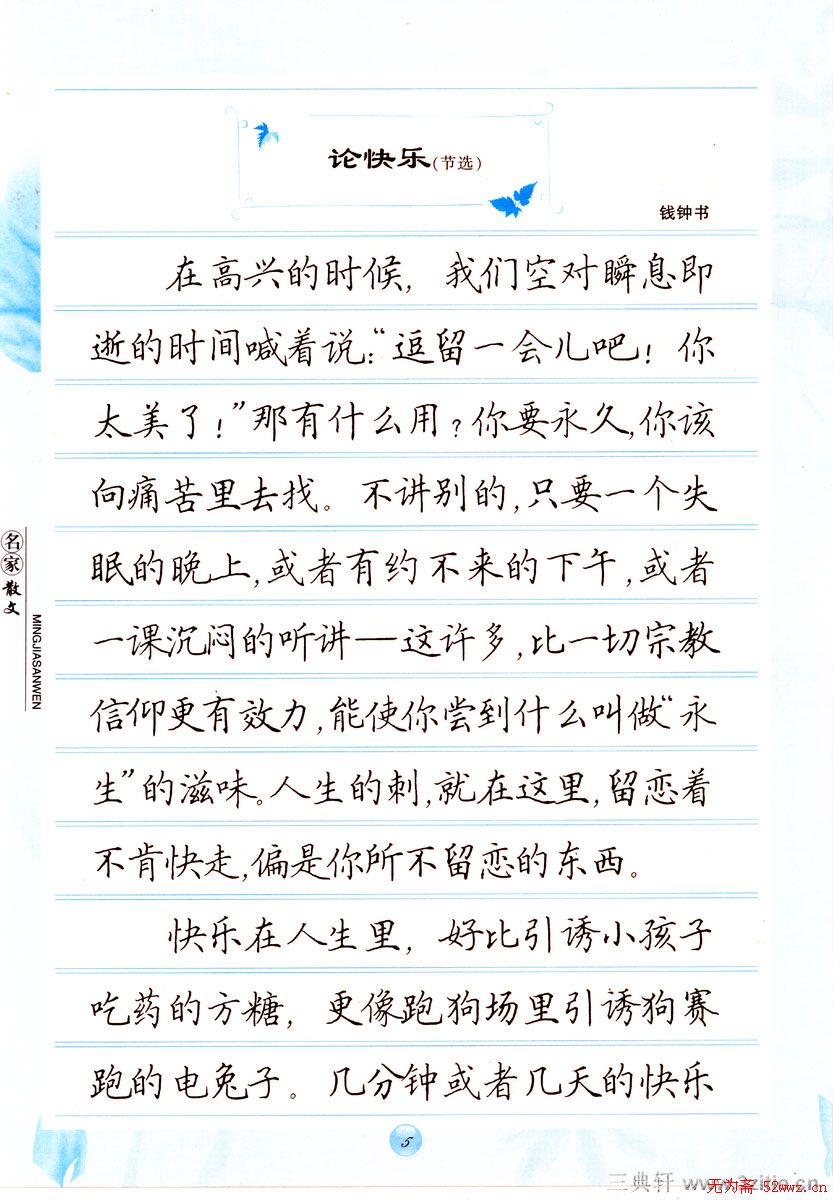 论快乐(节选)
钱钟书
在高兴的时候，我们空对瞬息即
逝的时间喊着说：“逗留一会儿吧！你
太美了！”那有什么用？你要永久，你该
向痛苦里去找。不讲别的，只要一个失
眠的晚上，或者有约不来的下午，或者
一课沉闷的听讲—这许多，比一切宗教
信仰更有效力，能使你尝到什么叫做“永
生”的滋味。人生的刺，就在这里，留恋着
不肯快走，偏是你所不留恋的东西。
快乐在人生里，好比引诱小孩子
吃药的方糖，更像跑狗场里引诱狗赛
跑的电兔子。几分钟或者几天的快乐
名家散文
MINGJIASANWEN
5
三典轩
无为斋.52wwz.cn